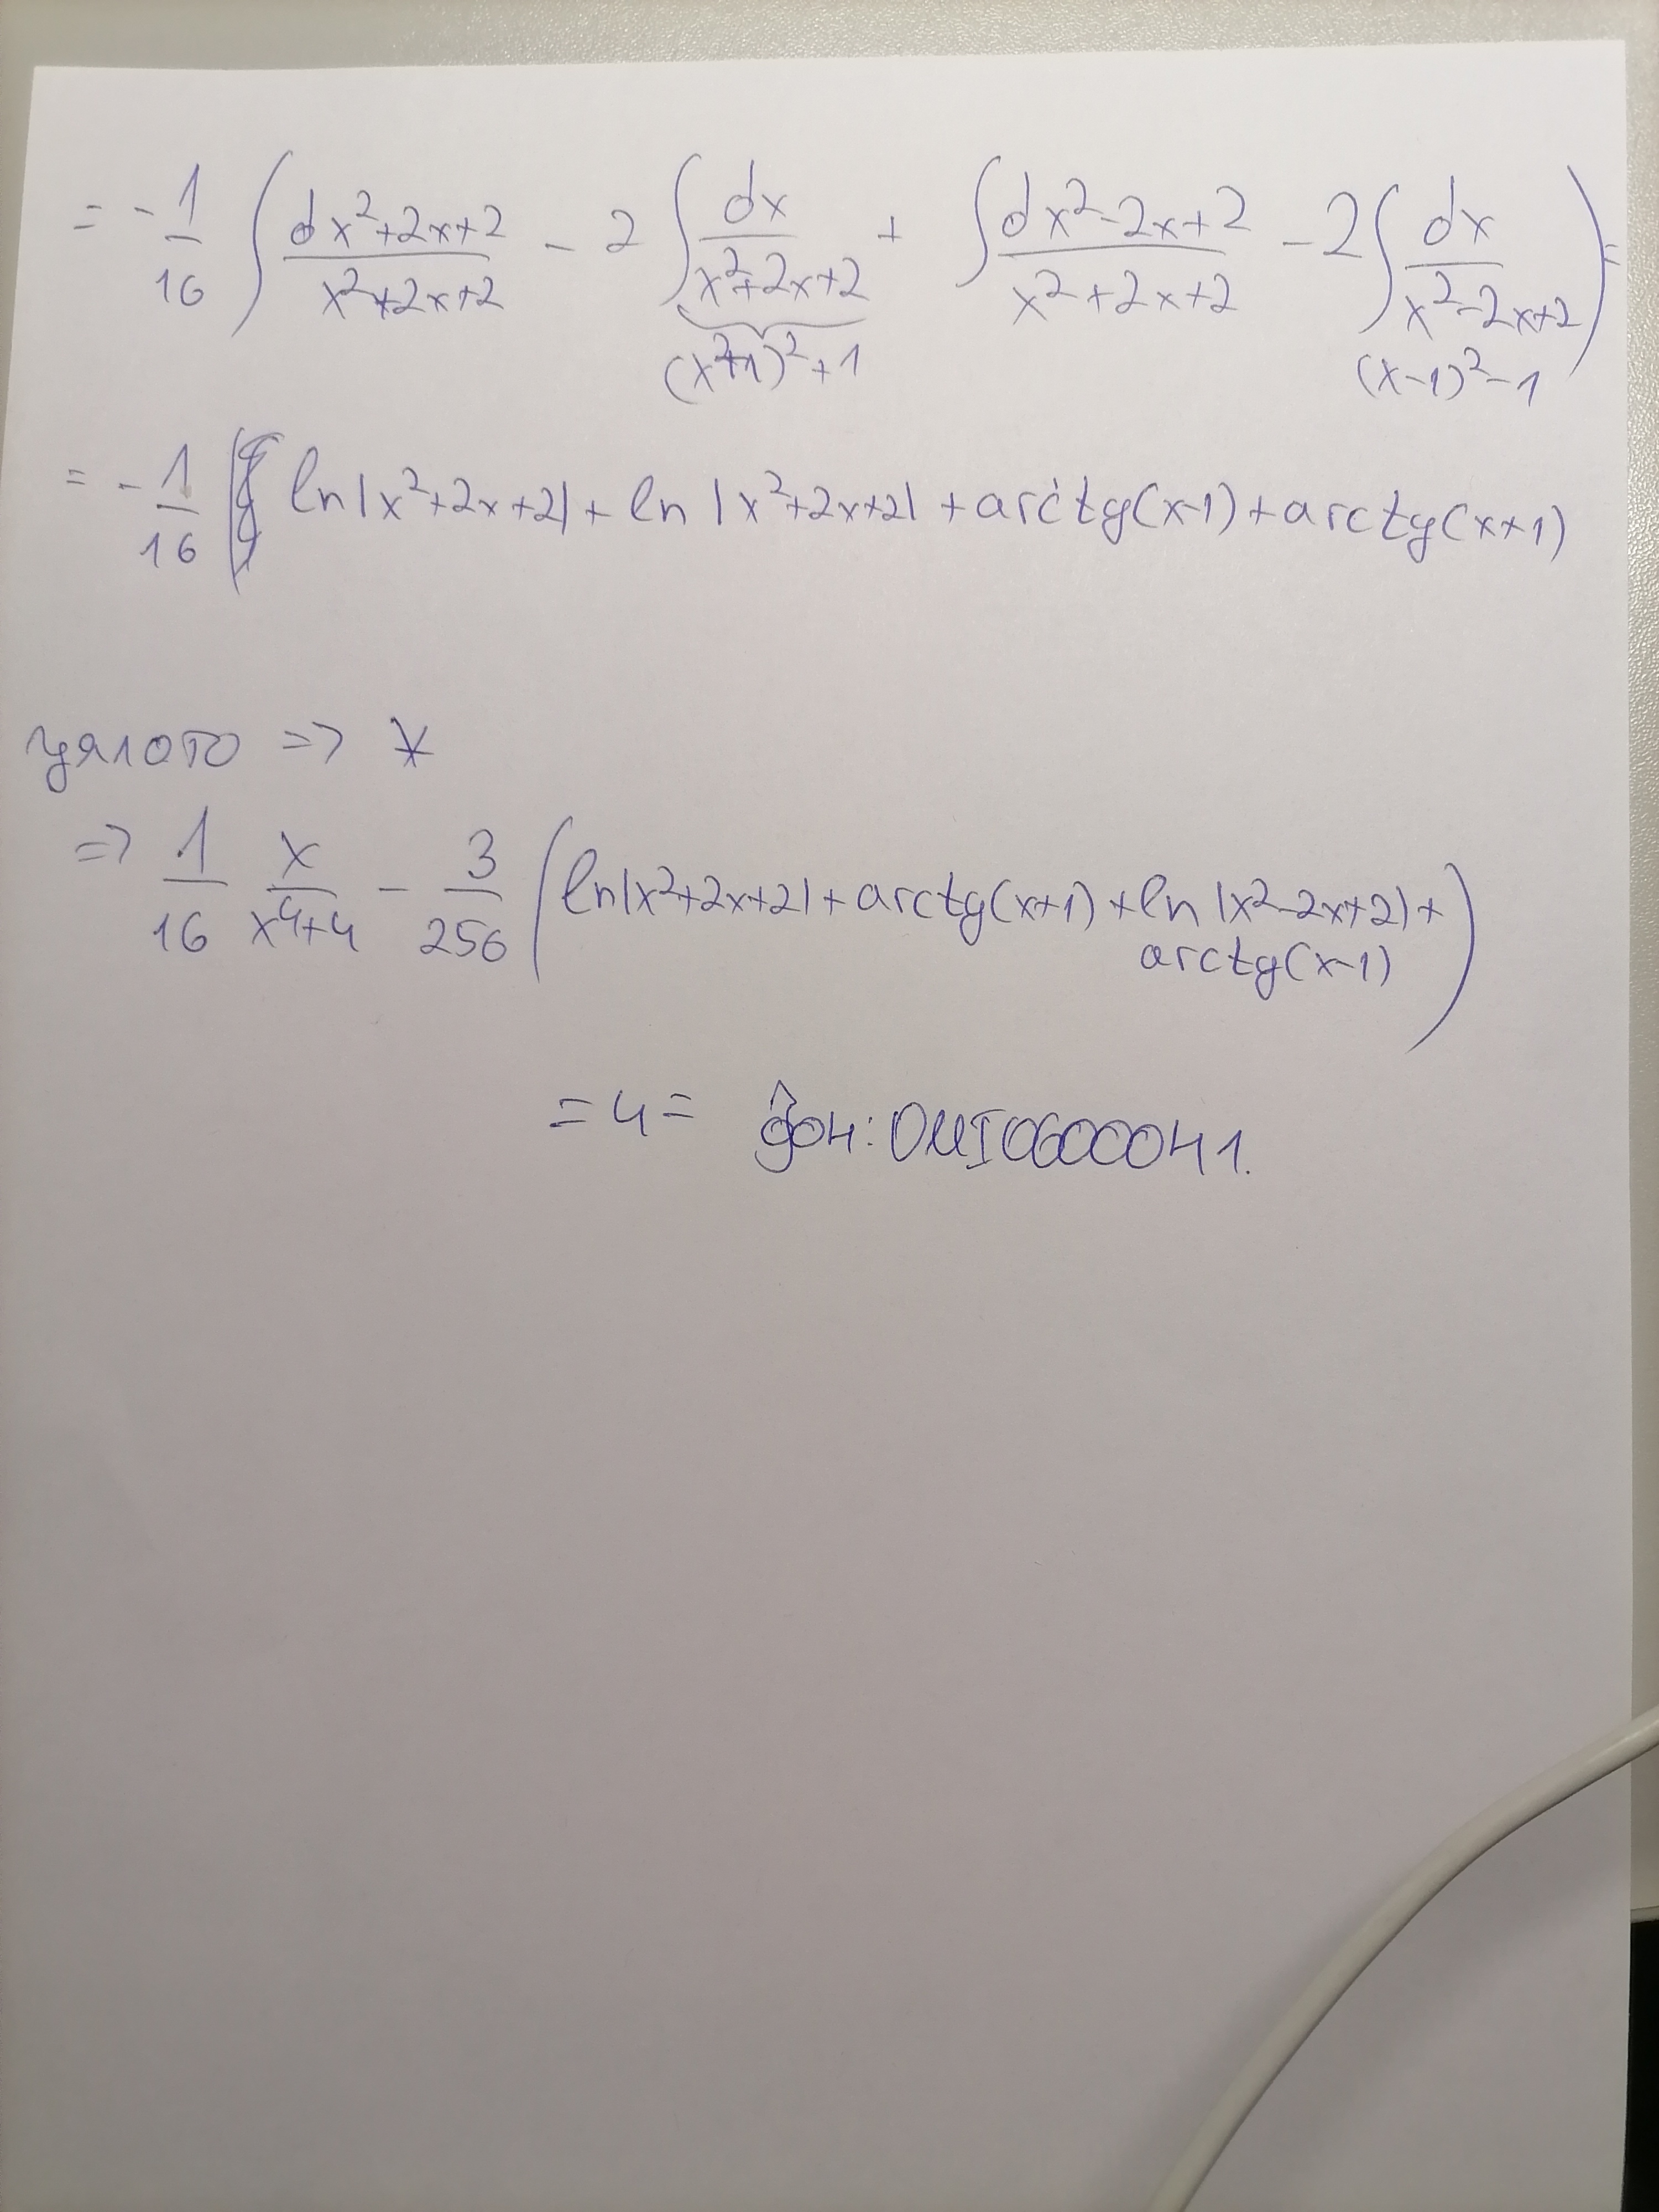 = - 1/16 ( ∫ dx²+2x+2 / x²+2x+2 - 2 ∫ dx / x²+2x+2 + ∫ dx²-2x+2 / x²+2x+2 - 2 ∫ dx / x²-2x+2 ) =
(x²+1)²+1 (x-1)²-1
= - 1/16 ( ln|x²+2x+2| + ln|x²+2x+2| + arctg(x-1) + arctg(x+1)
цялото => *
=> 1/16 x/x⁴+4 - 3/256 ( ln|x²+2x+2| + arctg(x+1) + ln|x²-2x+2| +
arctg(x-1) )
= 4 =